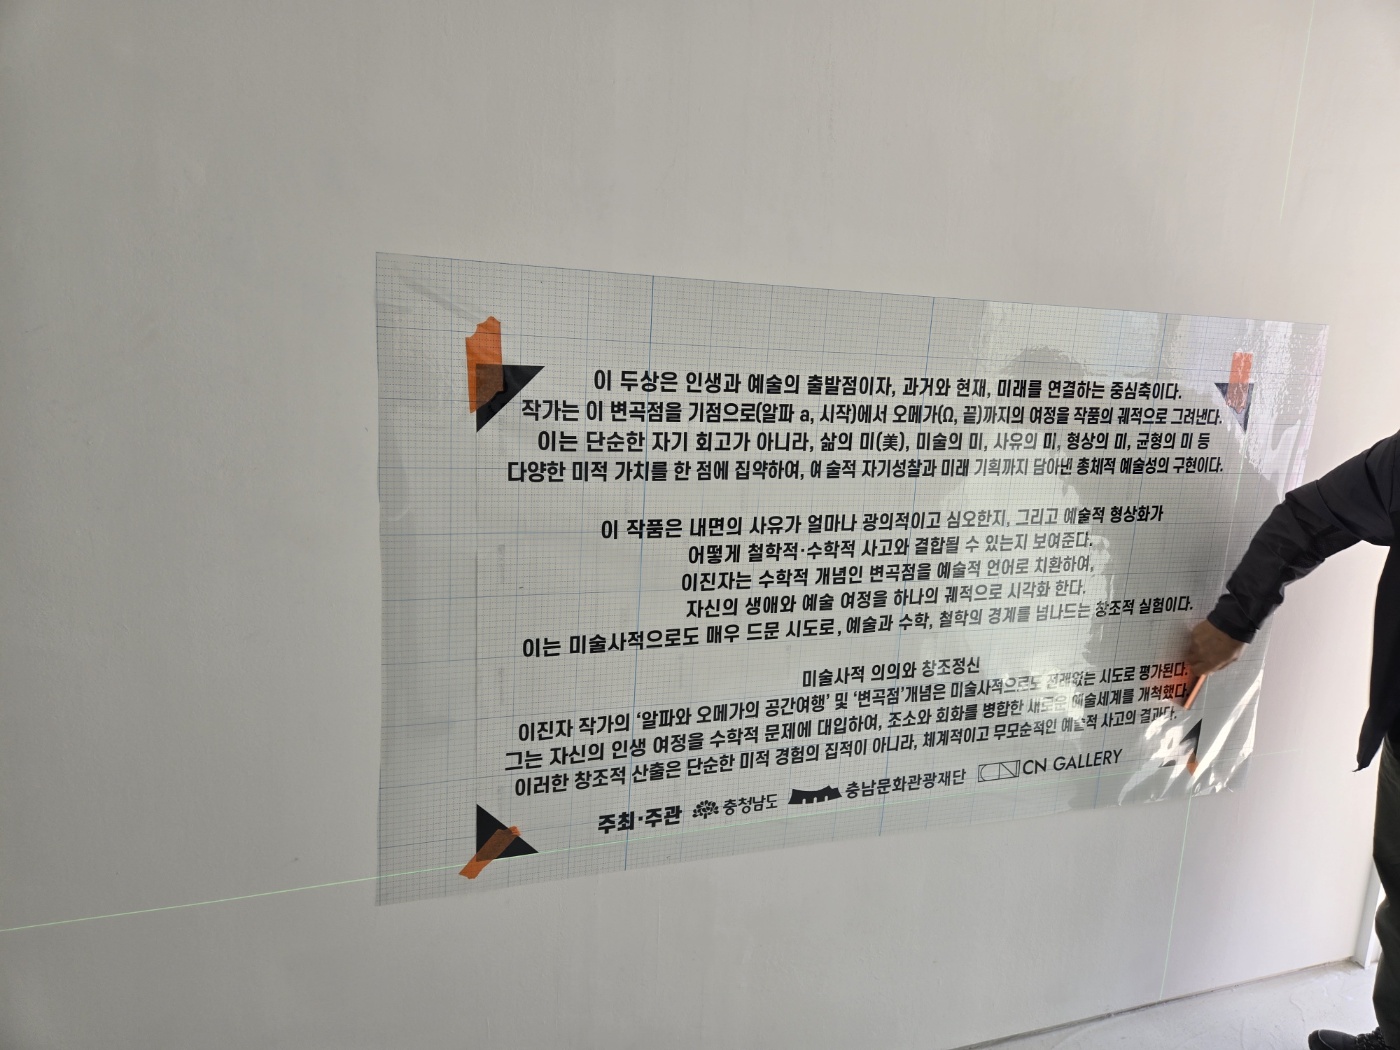 이 두상은 인생과 예술의 출발점이자, 과거와 현재, 미래를 연결하는 중심축이다.
작가는 이 변곡점을 기점으로(알파 a, 시작)에서 오메가(Ω, 끝)까지의 여정을 작품의 궤적으로 그려낸다.
이는 단순한 자기 회고가 아니라, 삶의 미(美), 미술의 미, 사유의 미, 형상의 미, 균형의 미 등
다양한 미적 가치를 한 점에 집약하여, 예술적 자기성찰과 미래 기획까지 담아낸 총체적 예술성의 구현이다.
이 작품은 내면의 사유가 얼마나 광의적이고 심오한지, 그리고 예술적 형상화가
어떻게 철학적·수학적 사고와 결합될 수 있는지 보여준다.
이진자는 수학적 개념인 변곡점을 예술적 언어로 치환하여,
자신의 생애와 예술 여정을 하나의 궤적으로 시각화 한다.
이는 미술사적으로도 매우 드문 시도로, 예술과 수학, 철학의 경계를 넘나드는 창조적 실험이다.
미술사적 의의와 창조정신
이진자 작가의 ‘알파와 오메가의 공간여행’ 및 ‘변곡점’개념은 미술사적으로도 전례없는 시도로 평가된다.
그는 자신의 인생 여정을 수학적 문제에 대입하여, 조소와 회화를 병합한 새로운 예술세계를 개척했다.
이러한 창조적 산출은 단순한 미적 경험의 집적이 아니라, 체계적이고 무모순적인 예술적 사고의 결과다.
주최·주관 충청남도 충남문화관광재단 CN CN GALLERY